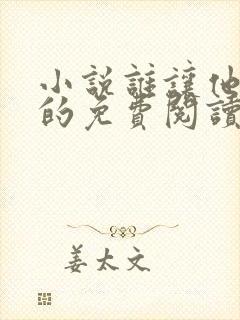 小說誰讓他
的免費閱讀
姜太文